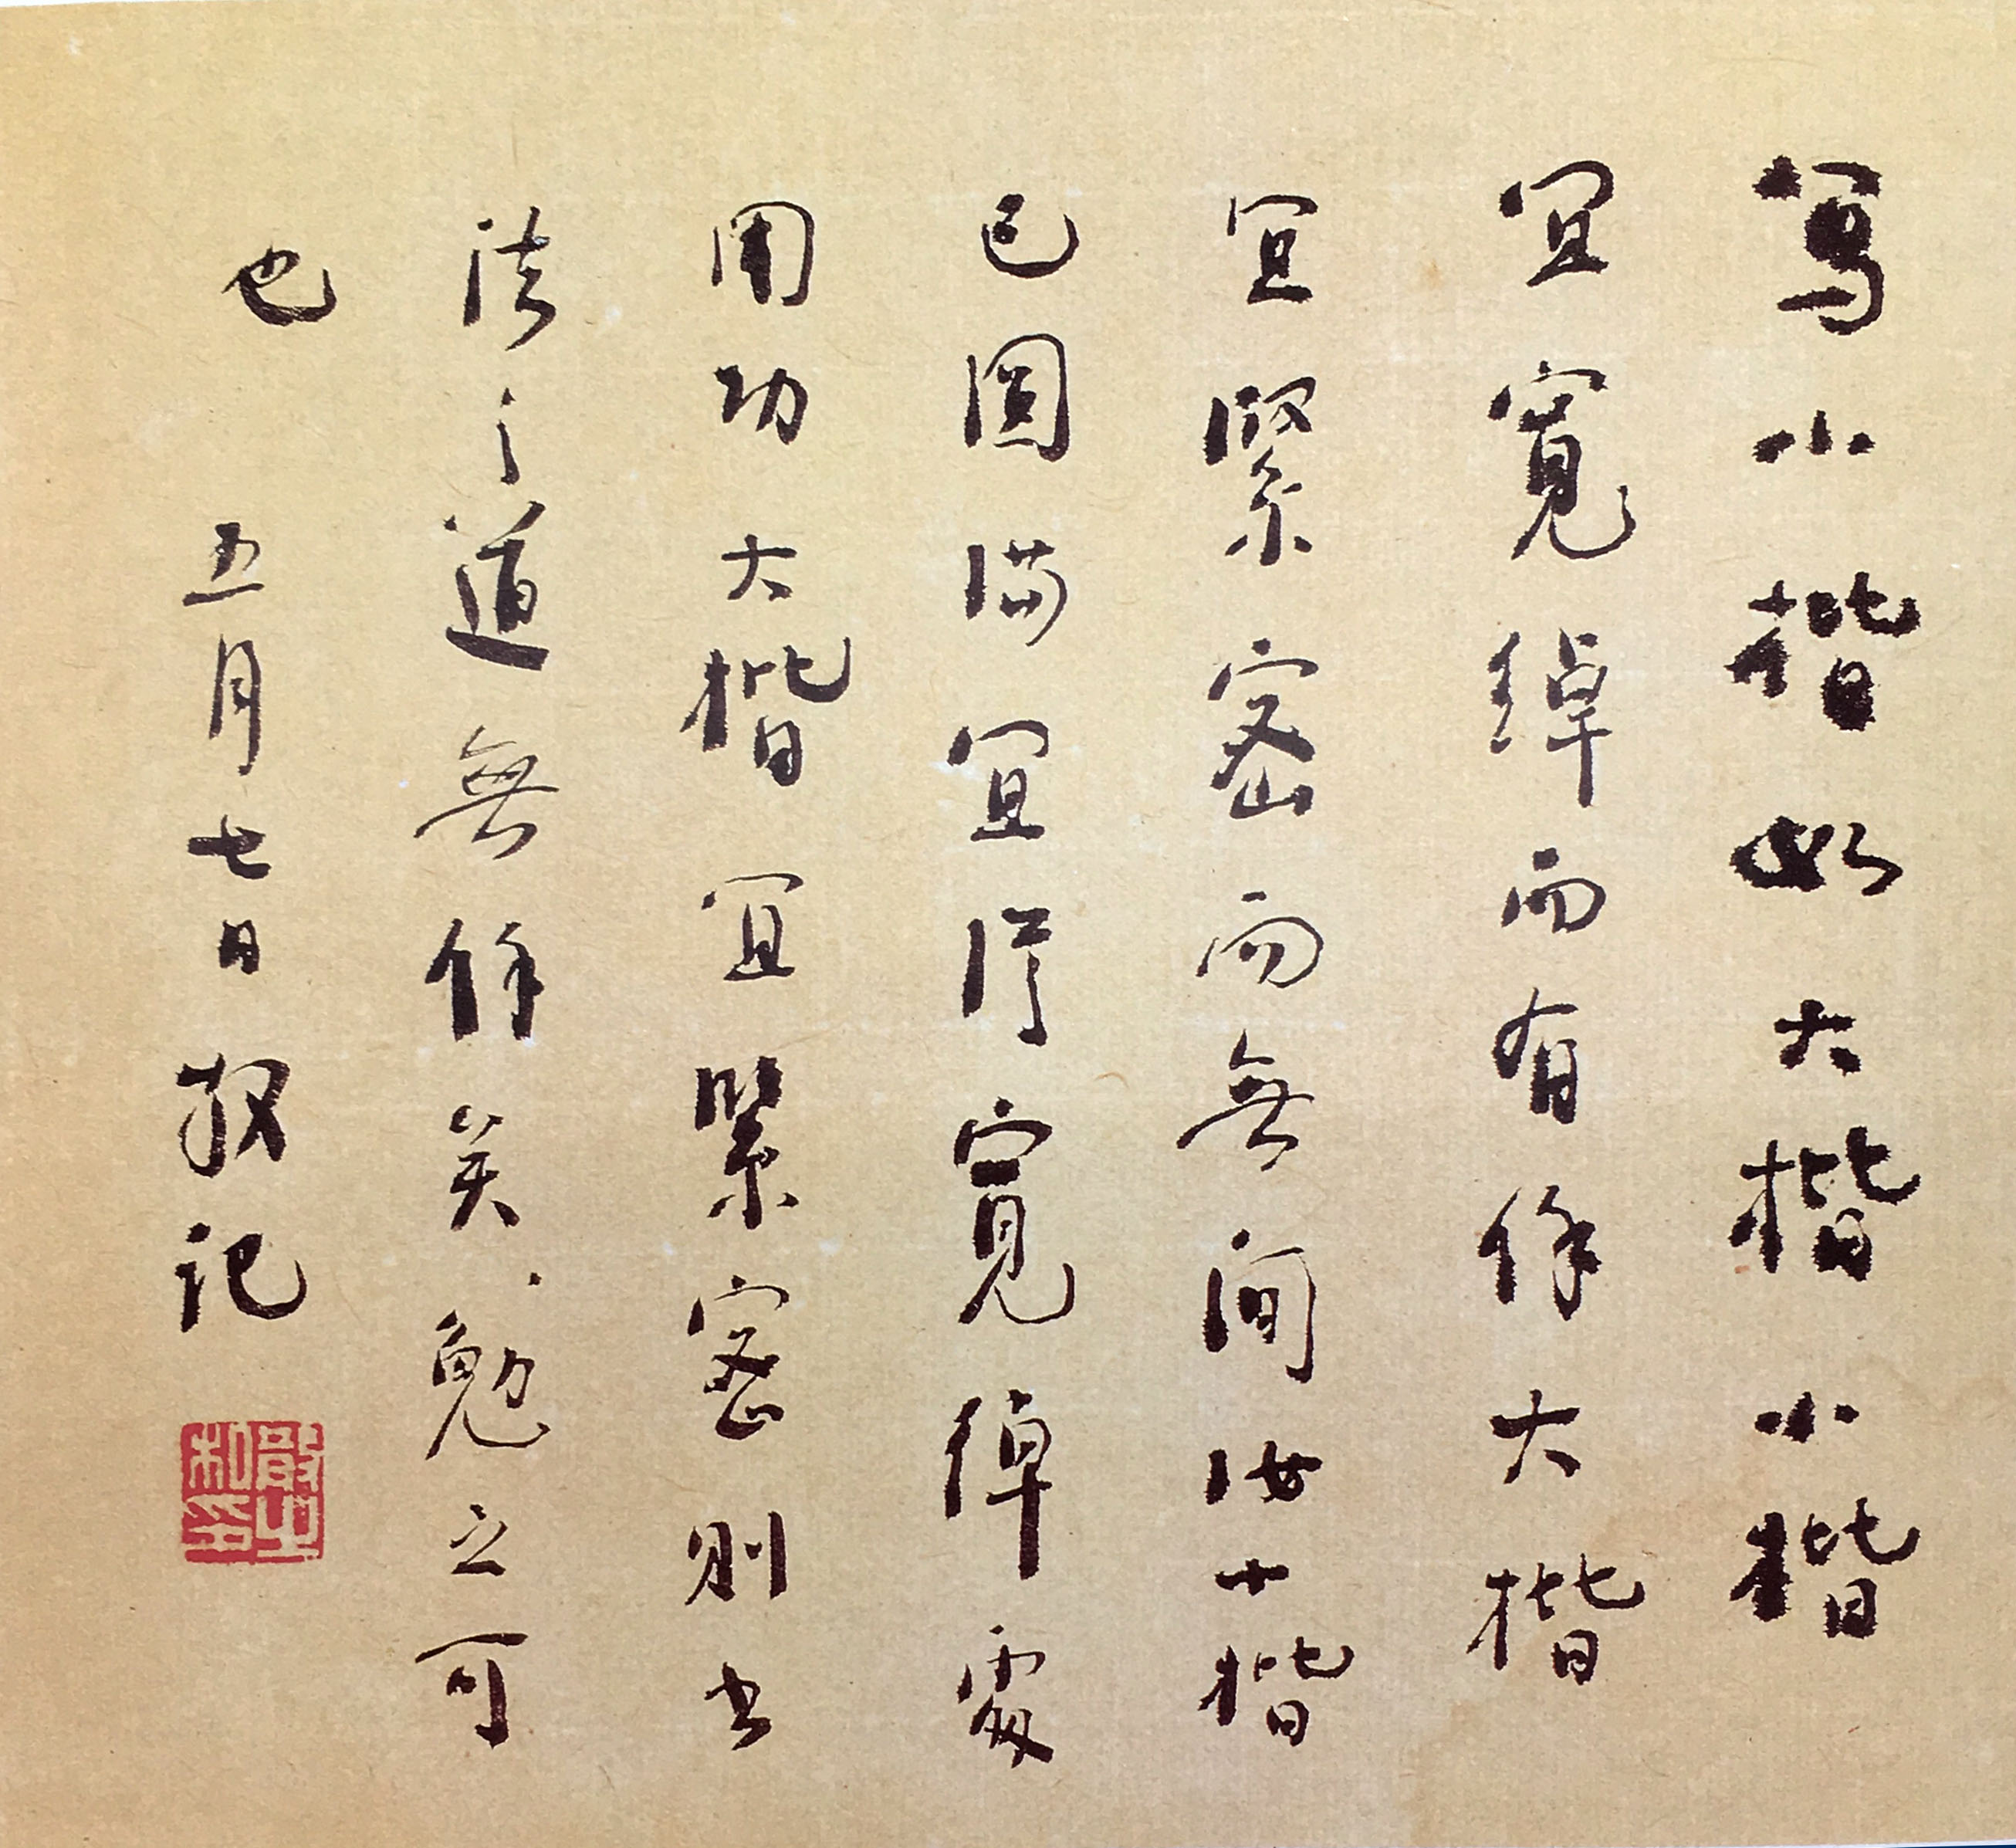 寫小楷如大楷小楷
宜寬綽而有餘大楷
宜緊密而無間汝小楷
已圓滿宜從寬綽處
用功大楷宜緊密則書
法之道無餘矣勉之可
也 五月七日散記
散之私印